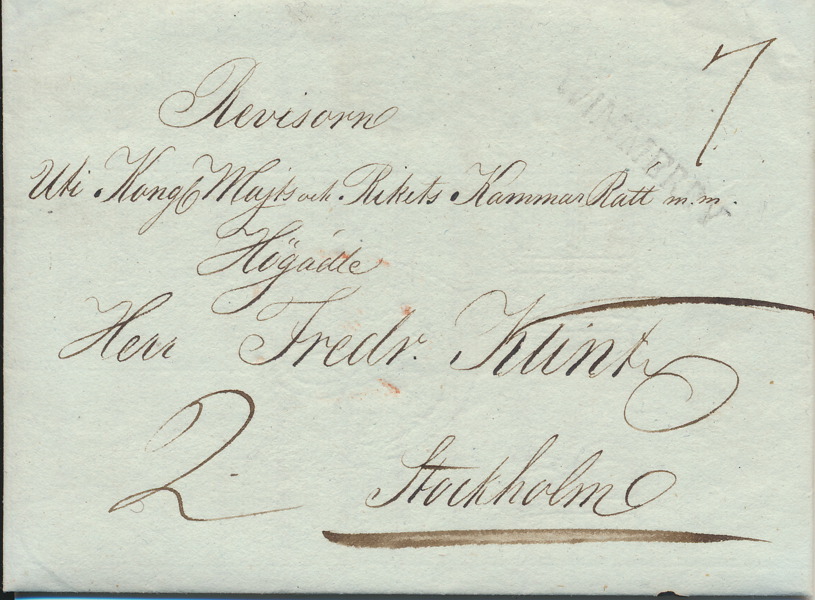 7
WIMMERBY
Revisorn
Uti Kongl Majts och Rikets Kammar Rätt m.m.
Högädle
Herr Fredr. Klint
2
Stockholm